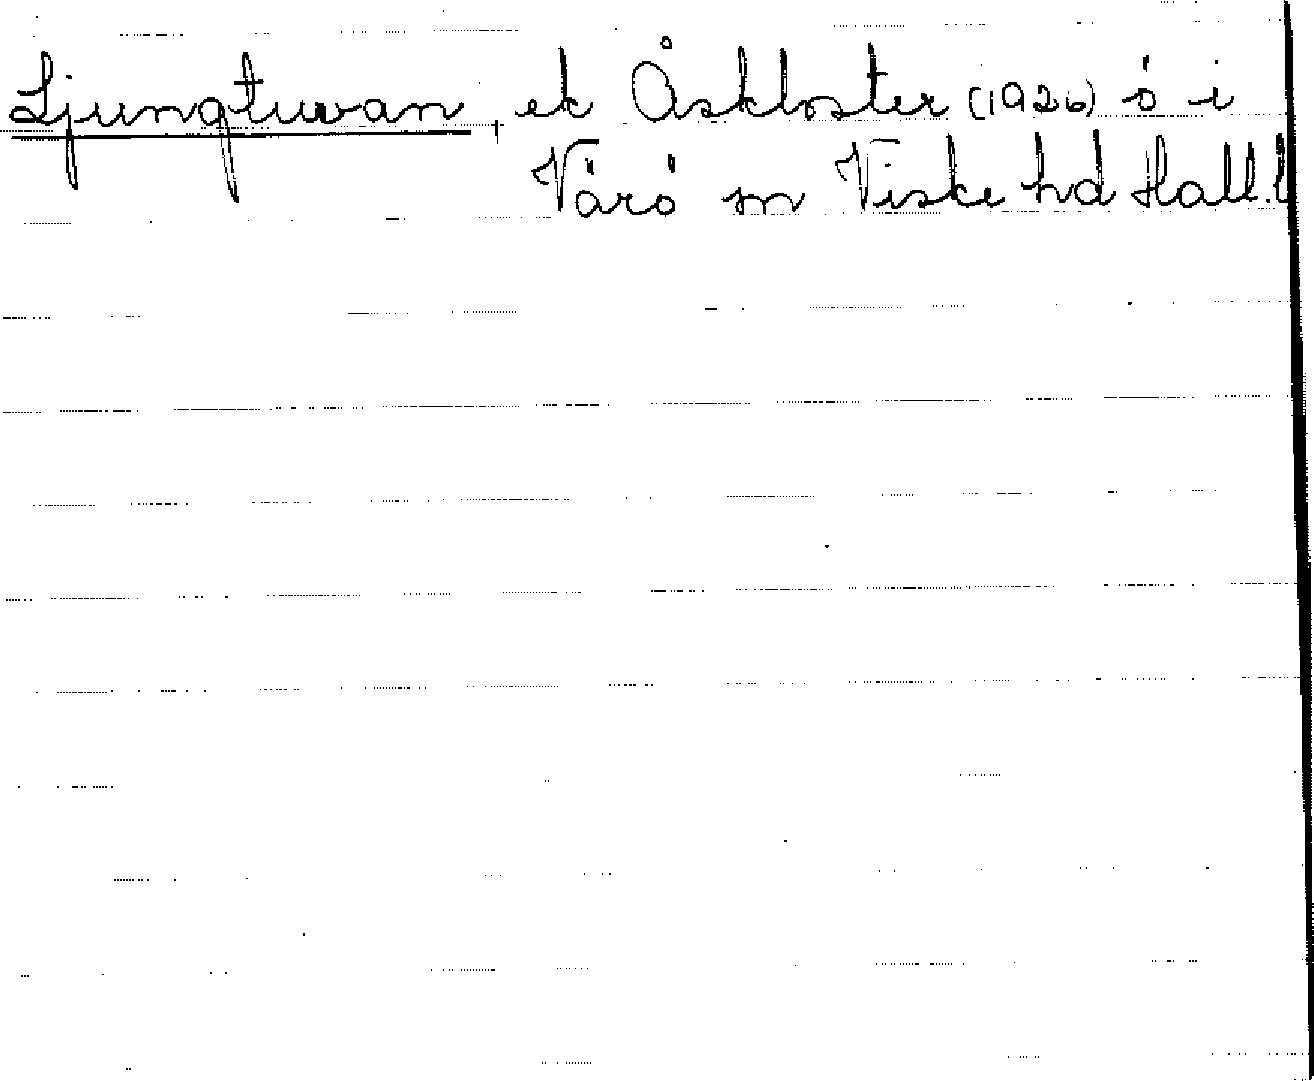 Ljungtuvan, ek Åskloster (1926) ö i
Värö sn Viske hd Hall.l